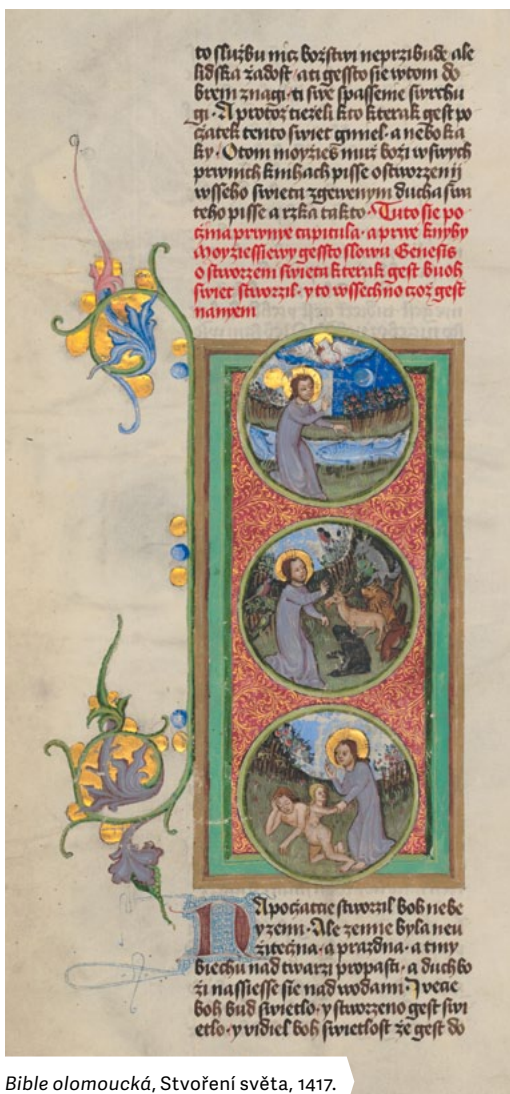 to slu&#382;bu nicz bo&#382;stwi neprzibude ale
lidska &#382;adost · a ti gessto sie wtom do
brem znagi · ti swe spasseme swrchu
gi · A proto&#382; tie&#382;eli kto kterak gest po
czatek tento swiet gmiel · a nebo ka
ky · O tom moyzies mu&#382; bo&#382;i w swych
prwnich knihach pisse o stworzenij
wsseho swieta zgewenym ducha swa
teho pisse a rzka takto · Tuto sie po
czina prwnye capitula · a prwe knyhy
Moyziessiewy gessto slowu Genesis
o stworzeni swieta kterak gest buoh
swiet stworzil · y to wssechno czo&#382; gest
na nyem
Na poczatcie stworzil boh nebe
y zemi · Ale zemie byla neu
&#382;iteczna · a prazdna · a tmy
biechu nad twarzi propasti · a duch bo
&#382;i nassiesse sie nad wodami · I wece
boh bud swietlo · y stworzeno gest swi
etlo · y vidiel boh swietlost &#382;e gest do
Bible olomoucká, Stvoření světa, 1417.